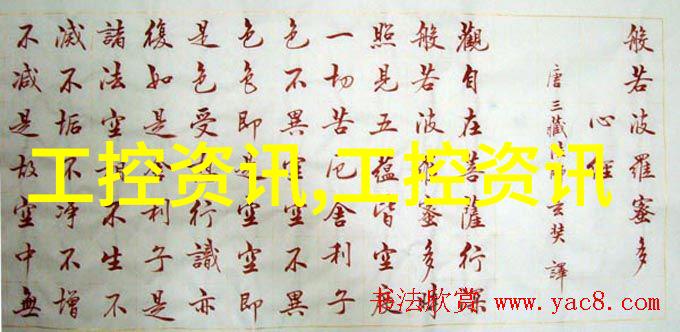 般若波羅蜜多
心經
唐三藏法師玄奘譯
觀自在菩薩行深
般若波羅蜜多時
照見五蘊皆空度
一切苦厄舍利子
色不異空空不異
色色即是空空即
是色受想行識亦
復如是舍利子是
諸法空相不生不
滅不垢不淨不增
不減是故空中無
工控资讯,工控资讯
书法欣赏 www.yac8.com